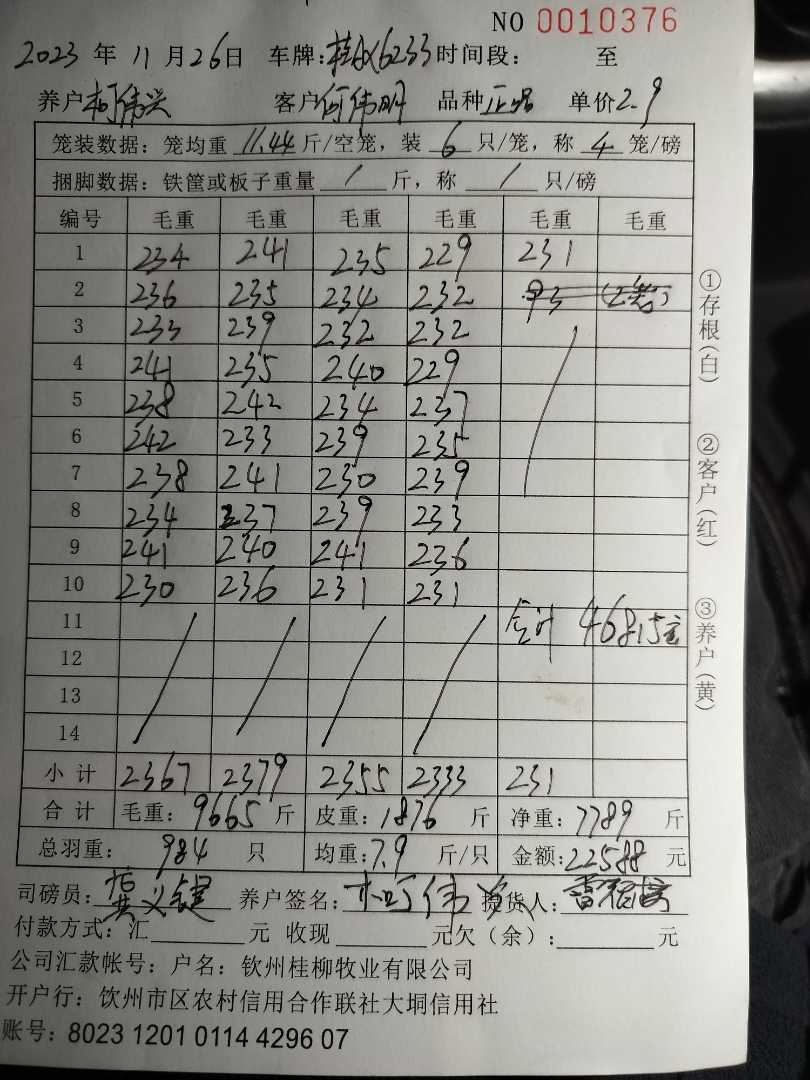 NO 0010376
2023 年 11 月 26 日 车牌: 桂 6233 时间段: 至
养户 柯伟兴 客户 何伟明 品种 正 单价 2.9
笼装数据: 笼均重 11.44 斤/空笼, 装 6 只/笼, 称 4 笼/磅
捆脚数据: 铁筐或板子重量 / 斤, 称 / 只/磅
编号 毛重 毛重 毛重 毛重 毛重 毛重
1 234 241 235 229 231
2 236 235 234 232
3 233 239 232 232
4 241 235 240 229
5 238 242 234 237
6 242 233 239 235
7 238 241 230 239
8 234 237 239 233
9 241 240 241 236
10 230 236 231 231
11 合计 46815
12
13
14
小计 2367 2379 2355 2333 231
合计 毛重: 9665 斤 皮重: 1876 斤 净重: 7789 斤
总羽重: 984 只 均重: 7.9 斤/只 金额: 22588 元
司磅员: 义键 养户签名: 柯伟兴 提货人:
付款方式: 汇 元 收现 元欠(余): 元
公司汇款帐号: 户名: 钦州桂柳牧业有限公司
开户行: 钦州市区农村信用合作联社大垌信用社
账号: 8023 1201 0114 4296 07
①存根(白)
②客户(红)
③养户(黄)